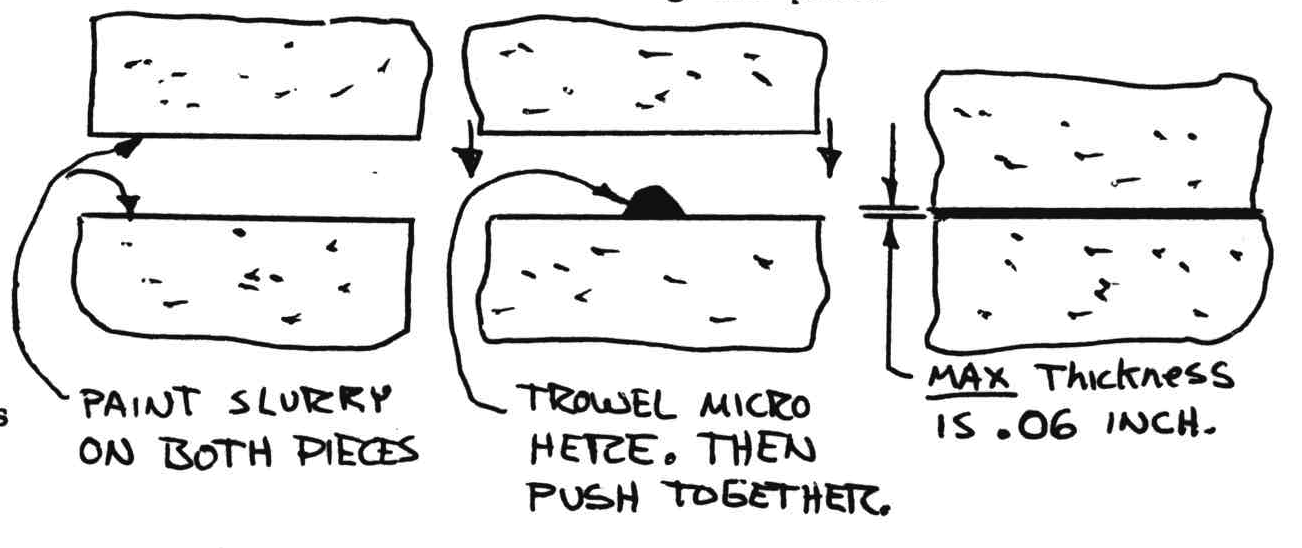 PAINT SLURRY
ON BOTH PIECES
TROWEL MICRO
HERE. THEN
PUSH TOGETHER.
MAX Thickness
IS .06 INCH.